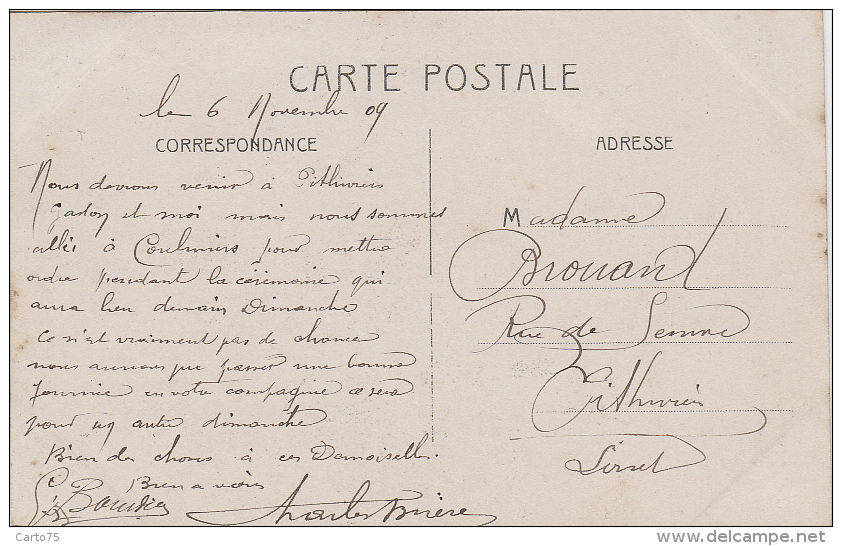 CARTE POSTALE
le 6 Novembre 09
CORRESPONDANCE
Nous devions venir à Pithiviers
Gaston et moi mais nous sommes
allés à Coulmiers pour mettre
ordre pendant la cérémonie qui
aura lieu demain Dimanche
Ce n'est vraiment pas de chance
nous aurions pu passer une bonne
journée en votre compagnie ce sera
pour un autre dimanche
Bien des choses à ces Demoiselles.
Bien à vous
Charles Brière
ADRESSE
Madame
Brouard
Rue de
Pithiviers
Loiret
Carto75
www.delcampe.net